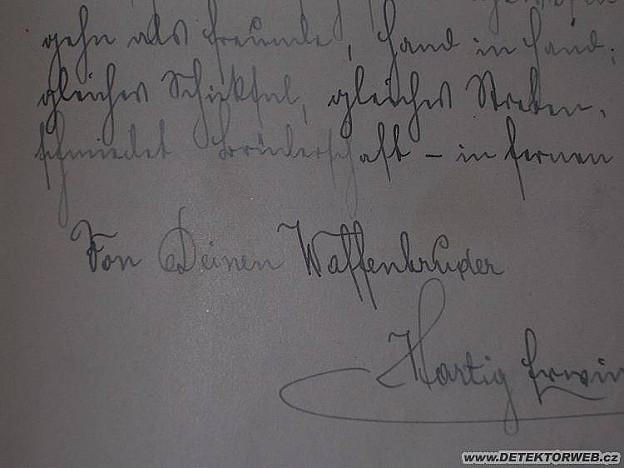 gehn als Freunde, Hand in Hand;
gleiches Schicksal, gleiches Streben,
schmiedet Brüderschaft – in fernen
Von Deinen Waffenbruder
Hartig Erwin
www.DETEKTORWEB.cz